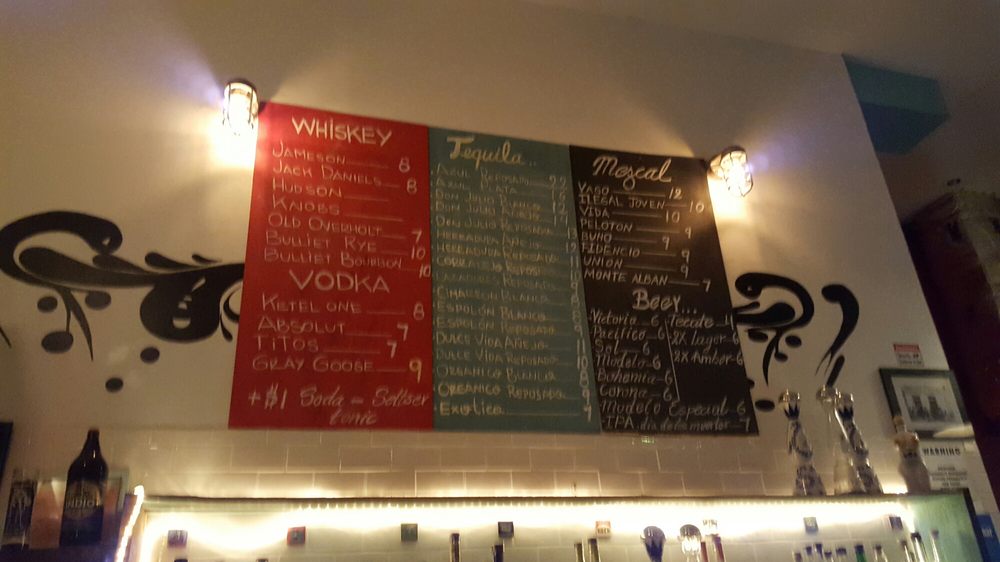 WHISKEY
JAMESON 8
JACK DANIELS 8
HUDSON
KNOBS
OLD OVERHOLT 7
BULLIET RYE 10
BULLIET BOURBON 10
VODKA
KETEL ONE 8
ABSOLUT 7
TITOS 7
GRAY GOOSE 9
+$1 Soda - Seltser
tonic
Tequila..
AZUL REPOSADO 22
AZUL PLATA
DON JULIO BLANCO 12
DON JULIO AÑEJO
DON JULIO REPOSADO
HERRADURA AÑEJO 12
HERRADURA REPOSADO
CORRALEJO REPOSO
CAZADORES REPOSADO
CIMARRON BLANCO
ESPOLÓN BLANCO
ESPOLÓN REPOSADO
DULCE VIDA AÑEJO
DULCE VIDA REPOSADO
ORGANICO BLANCO
ORGANICO REPOSADO
Exotico 7
Mezcal
VAGO 12
ILEGAL JOVEN 10
VIDA 10
PELOTON 9
BUHO 9
FIDENCIO 9
UNION 9
MONTE ALBAN 7
Beer...
Victoria 6 Tecate 4
Pacifico 6 2X Lager-6
Sol 6 2X Amber-6
Modelo 6
Bohemia-6
Corona 6
Modelo Especial 6
IPA. dia de los muertos 7
INDIO
WARNING